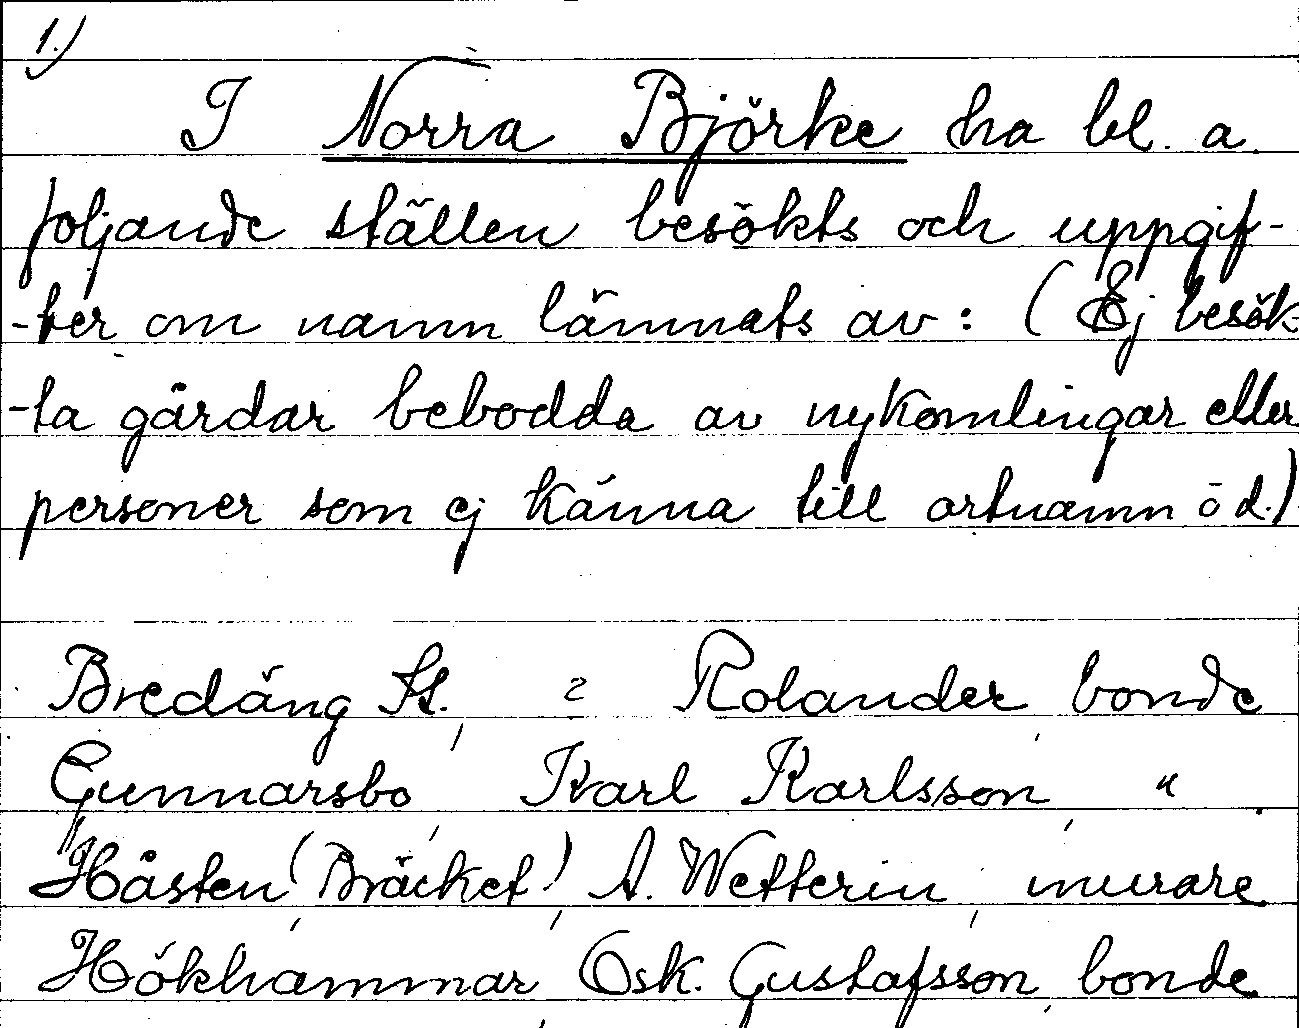 1.)
I Norra Björke ha bl. a.
följande ställen besökts och uppgif-
-ter om namn lämnats av: (Ej besök-
-ta gårdar bebodda av nykomlingar eller
personer som ej känna till ortnamn o d.)
Bredäng St., ? Rolander, bonde
Gunnarsbo, Karl Karlsson, "
Håsten (Bräcket), A. Wetterin, murare
Hökhammar, Osk. Gustafsson, bonde